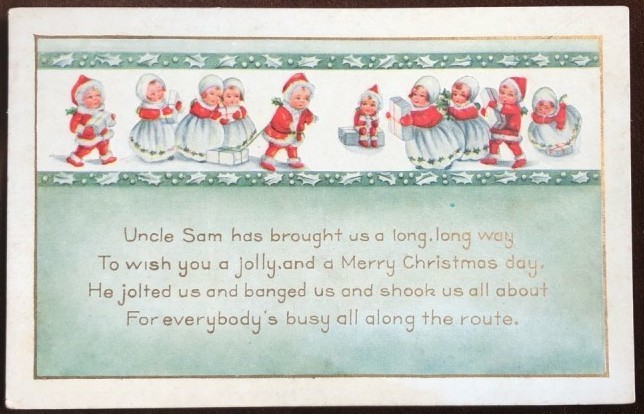 Uncle Sam has brought us a long, long way
To wish you a jolly, and a Merry Christmas day,
He jolted us and banged us and shook us all about
For everybody's busy all along the route.